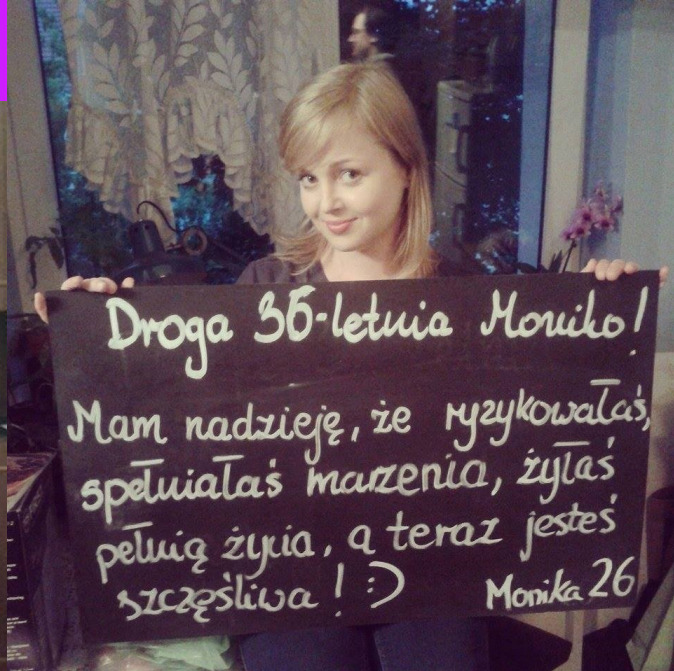 Droga 36-letnia Moniko!
Mam nadzieję, że ryzykowałaś,
spełniałaś marzenia, żyłaś
pełnią życia, a teraz jesteś
szczęśliwa! :)
Monika 26